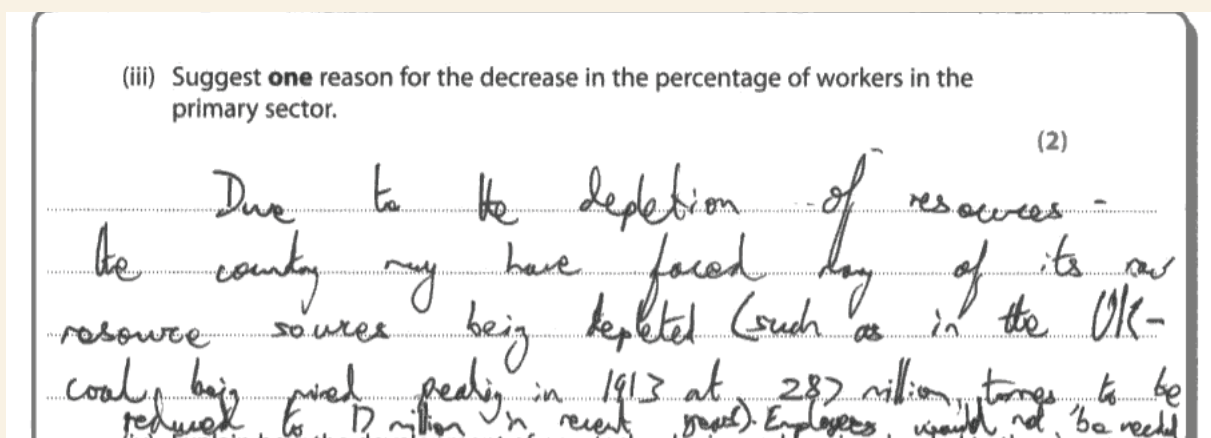 (iii) Suggest one reason for the decrease in the percentage of workers in the
primary sector.
(2)
Due to the depletion of resources -
the country may have faced of its raw
resource sources being depleted (such as in the UK-
coal, being mined peaking in 1913 at 287 million, tonnes to be
reduced to 17 million in recent years). Employees would not be needed